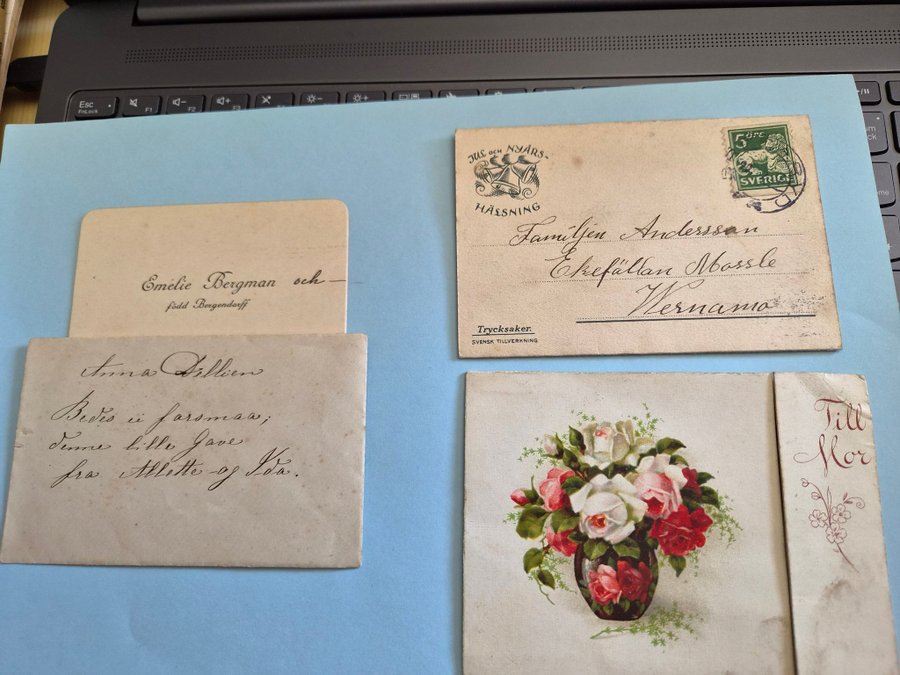 Esc
FnLock
F1
F2
F3
F4
F5
F6
Emelie Bergman och
född Bergendorff
Anna
Bedes ei forsmaa;
denne lille Gave
fra Allette og Ida.
JUL OCH NYÅRS-
HÄLSNING
5 ÖRE
SVERIGE
Familjen Andersson
Ekefällan Mossle
Wernamo
Trycksaker.
SVENSK TILLVERKNING
Till
Mor